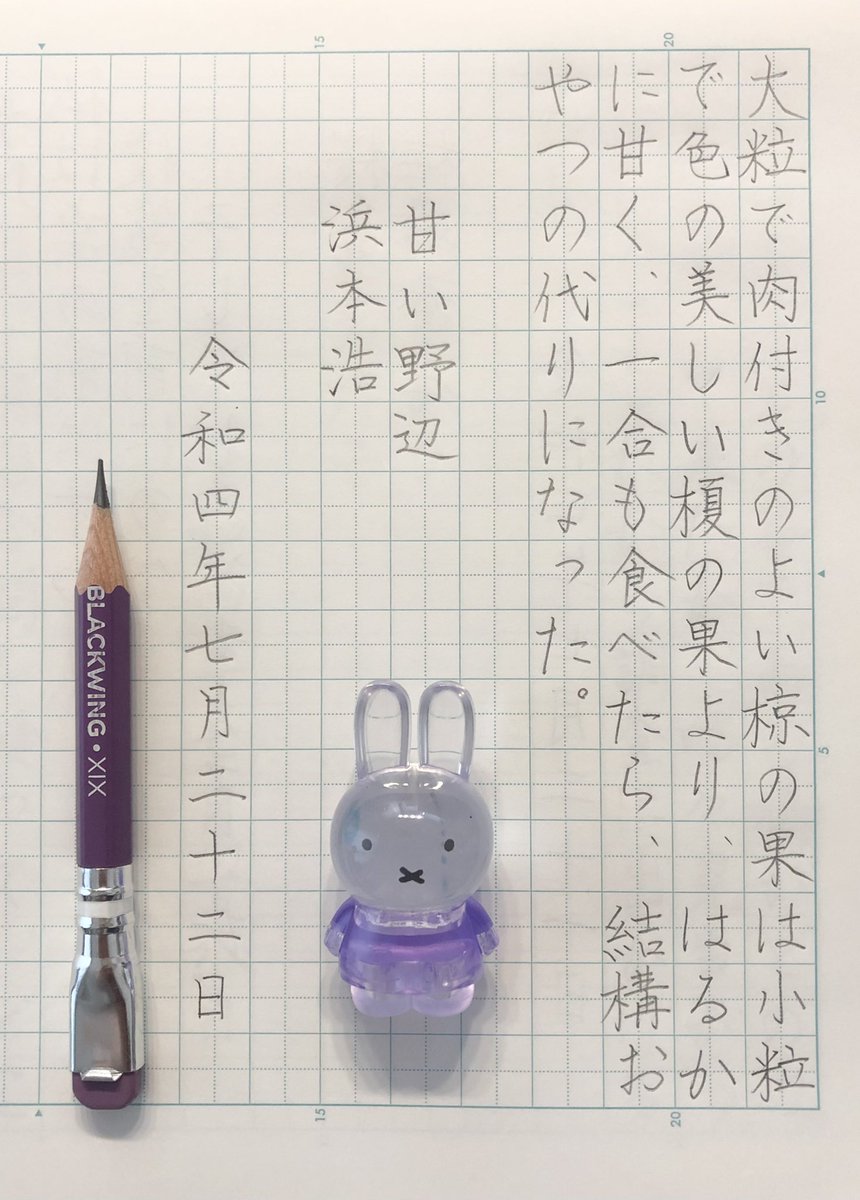 大粒で肉付きのよい椋の果は小粒
で色の美しい榎の果より、はるか
に甘く、一合も食べたら、結構お
やつの代りになった。
甘い野辺
浜本浩
令和四年七月二十二日
BLACKWING • XIX
20
15
10
5
20
15